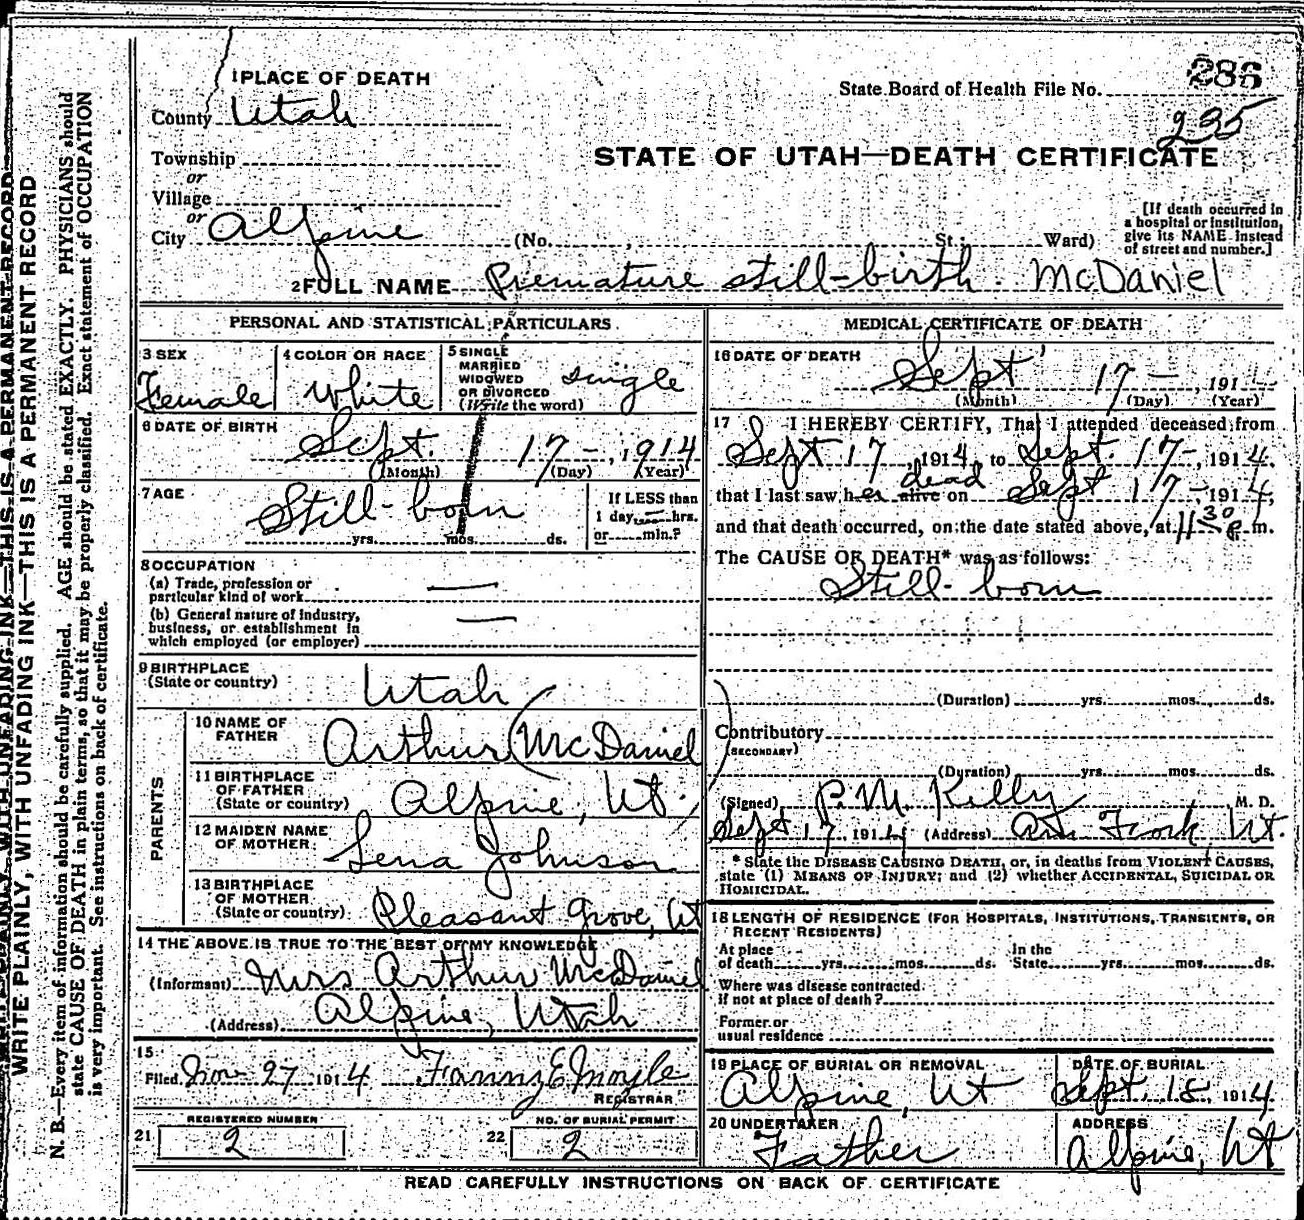 WRITE PLAINLY, WITH UNFADING INK—THIS IS A PERMANENT RECORD
N. B.—Every item of information should be carefully supplied. AGE should be stated EXACTLY. PHYSICIANS should
state CAUSE OF DEATH in plain terms, so that it may be properly classified. Exact statement of OCCUPATION
is very important. See instructions on back of certificate.
1 PLACE OF DEATH
286
State Board of Health File No.
235
County Utah
Township
or
Village
or
City Alpine (No. , St.; Ward)
STATE OF UTAH—DEATH CERTIFICATE
[If death occurred in
a hospital or institution,
give its NAME instead
of street and number.]
2 FULL NAME Premature still-birth. McDaniel
PERSONAL AND STATISTICAL PARTICULARS
3 SEX
Female
4 COLOR OR RACE
White
5 SINGLE
MARRIED
WIDOWED
OR DIVORCED
(Write the word)
single
6 DATE OF BIRTH
Sept. 17-, 1914
(Month) (Day) (Year)
7 AGE
Still-born
yrs. mos. ds.
If LESS than
1 day, hrs.
or min.?
8 OCCUPATION
(a) Trade, profession or
particular kind of work —
(b) General nature of industry,
business, or establishment in
which employed (or employer) —
9 BIRTHPLACE
(State or country)
Utah
PARENTS
10 NAME OF
FATHER
Arthur McDaniel
11 BIRTHPLACE
OF FATHER
(State or country)
Alpine, Ut.
12 MAIDEN NAME
OF MOTHER
Lena Johnson
13 BIRTHPLACE
OF MOTHER
(State or country)
Pleasant Grove, Ut
14 THE ABOVE IS TRUE TO THE BEST OF MY KNOWLEDGE
(Informant) Mrs Arthur McDaniel
(Address) Alpine, Utah
15
Filed Nov 27 1914 Fanny E Moyle
REGISTRAR
21 REGISTERED NUMBER
2
22 NO. OF BURIAL PERMIT
2
MEDICAL CERTIFICATE OF DEATH
16 DATE OF DEATH
Sept 17 - 191
(Month) (Day) (Year)
17 I HEREBY CERTIFY, That I attended deceased from
Sept 17, 1914, to Sept. 17-, 1914,
dead
that I last saw her alive on Sept 17-1914,
and that death occurred, on the date stated above, at 11 30 P m.
The CAUSE OF DEATH* was as follows:
Still-born
(Duration) yrs. mos. ds.
Contributory
(SECONDARY)
(Duration) yrs. mos. ds.
(Signed) P. M. Kelly M. D.
Sept 17, 1914 (Address) Am Fork, Ut.
* State the DISEASE CAUSING DEATH, or, in deaths from VIOLENT CAUSES,
state (1) MEANS OF INJURY; and (2) whether ACCIDENTAL, SUICIDAL OR
HOMICIDAL.
18 LENGTH OF RESIDENCE (FOR HOSPITALS, INSTITUTIONS, TRANSIENTS, OR
RECENT RESIDENTS)
At place
of death yrs. mos. ds.
In the
State yrs. mos. ds.
Where was disease contracted
if not at place of death?
Former or
usual residence
19 PLACE OF BURIAL OR REMOVAL
Alpine, Ut
DATE OF BURIAL
Sept. 18, 1914
20 UNDERTAKER
Father
ADDRESS
Alpine, Ut
READ CAREFULLY INSTRUCTIONS ON BACK OF CERTIFICATE